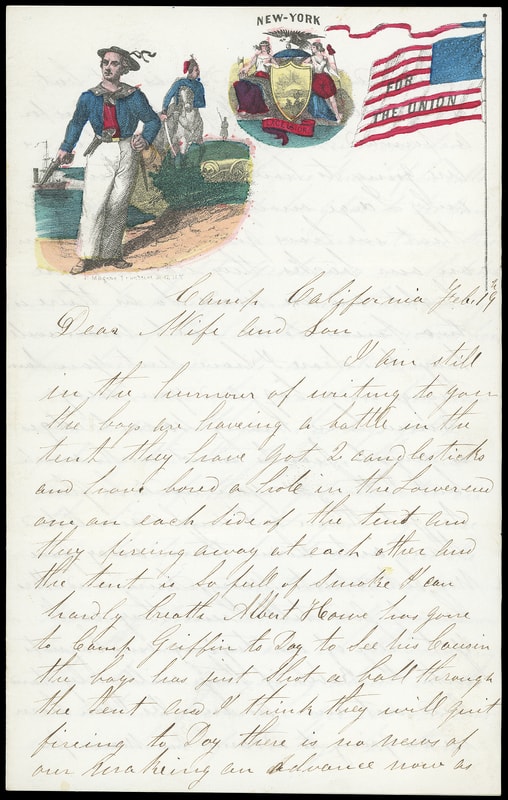 NEW-YORK
EXCELSIOR
FOR
THE UNION
Camp California Feb. 19th
Dear Wife and Son
I am still
in the humour of writing to you
the boys are haveing a battle in the
tent they have got 2 candlesticks
and have bored a hole in the Lower end
one on each side of the tent and
they fireing away at each other and
the tent is so full of smoke I can
hardly breath Albert Howe has gone
to Camp Griffin to Day to See his Cousin
the boys has just Shot a ball through
the tent and I think they will quit
fireing to Day there is no news of
our Makeing an advance now as